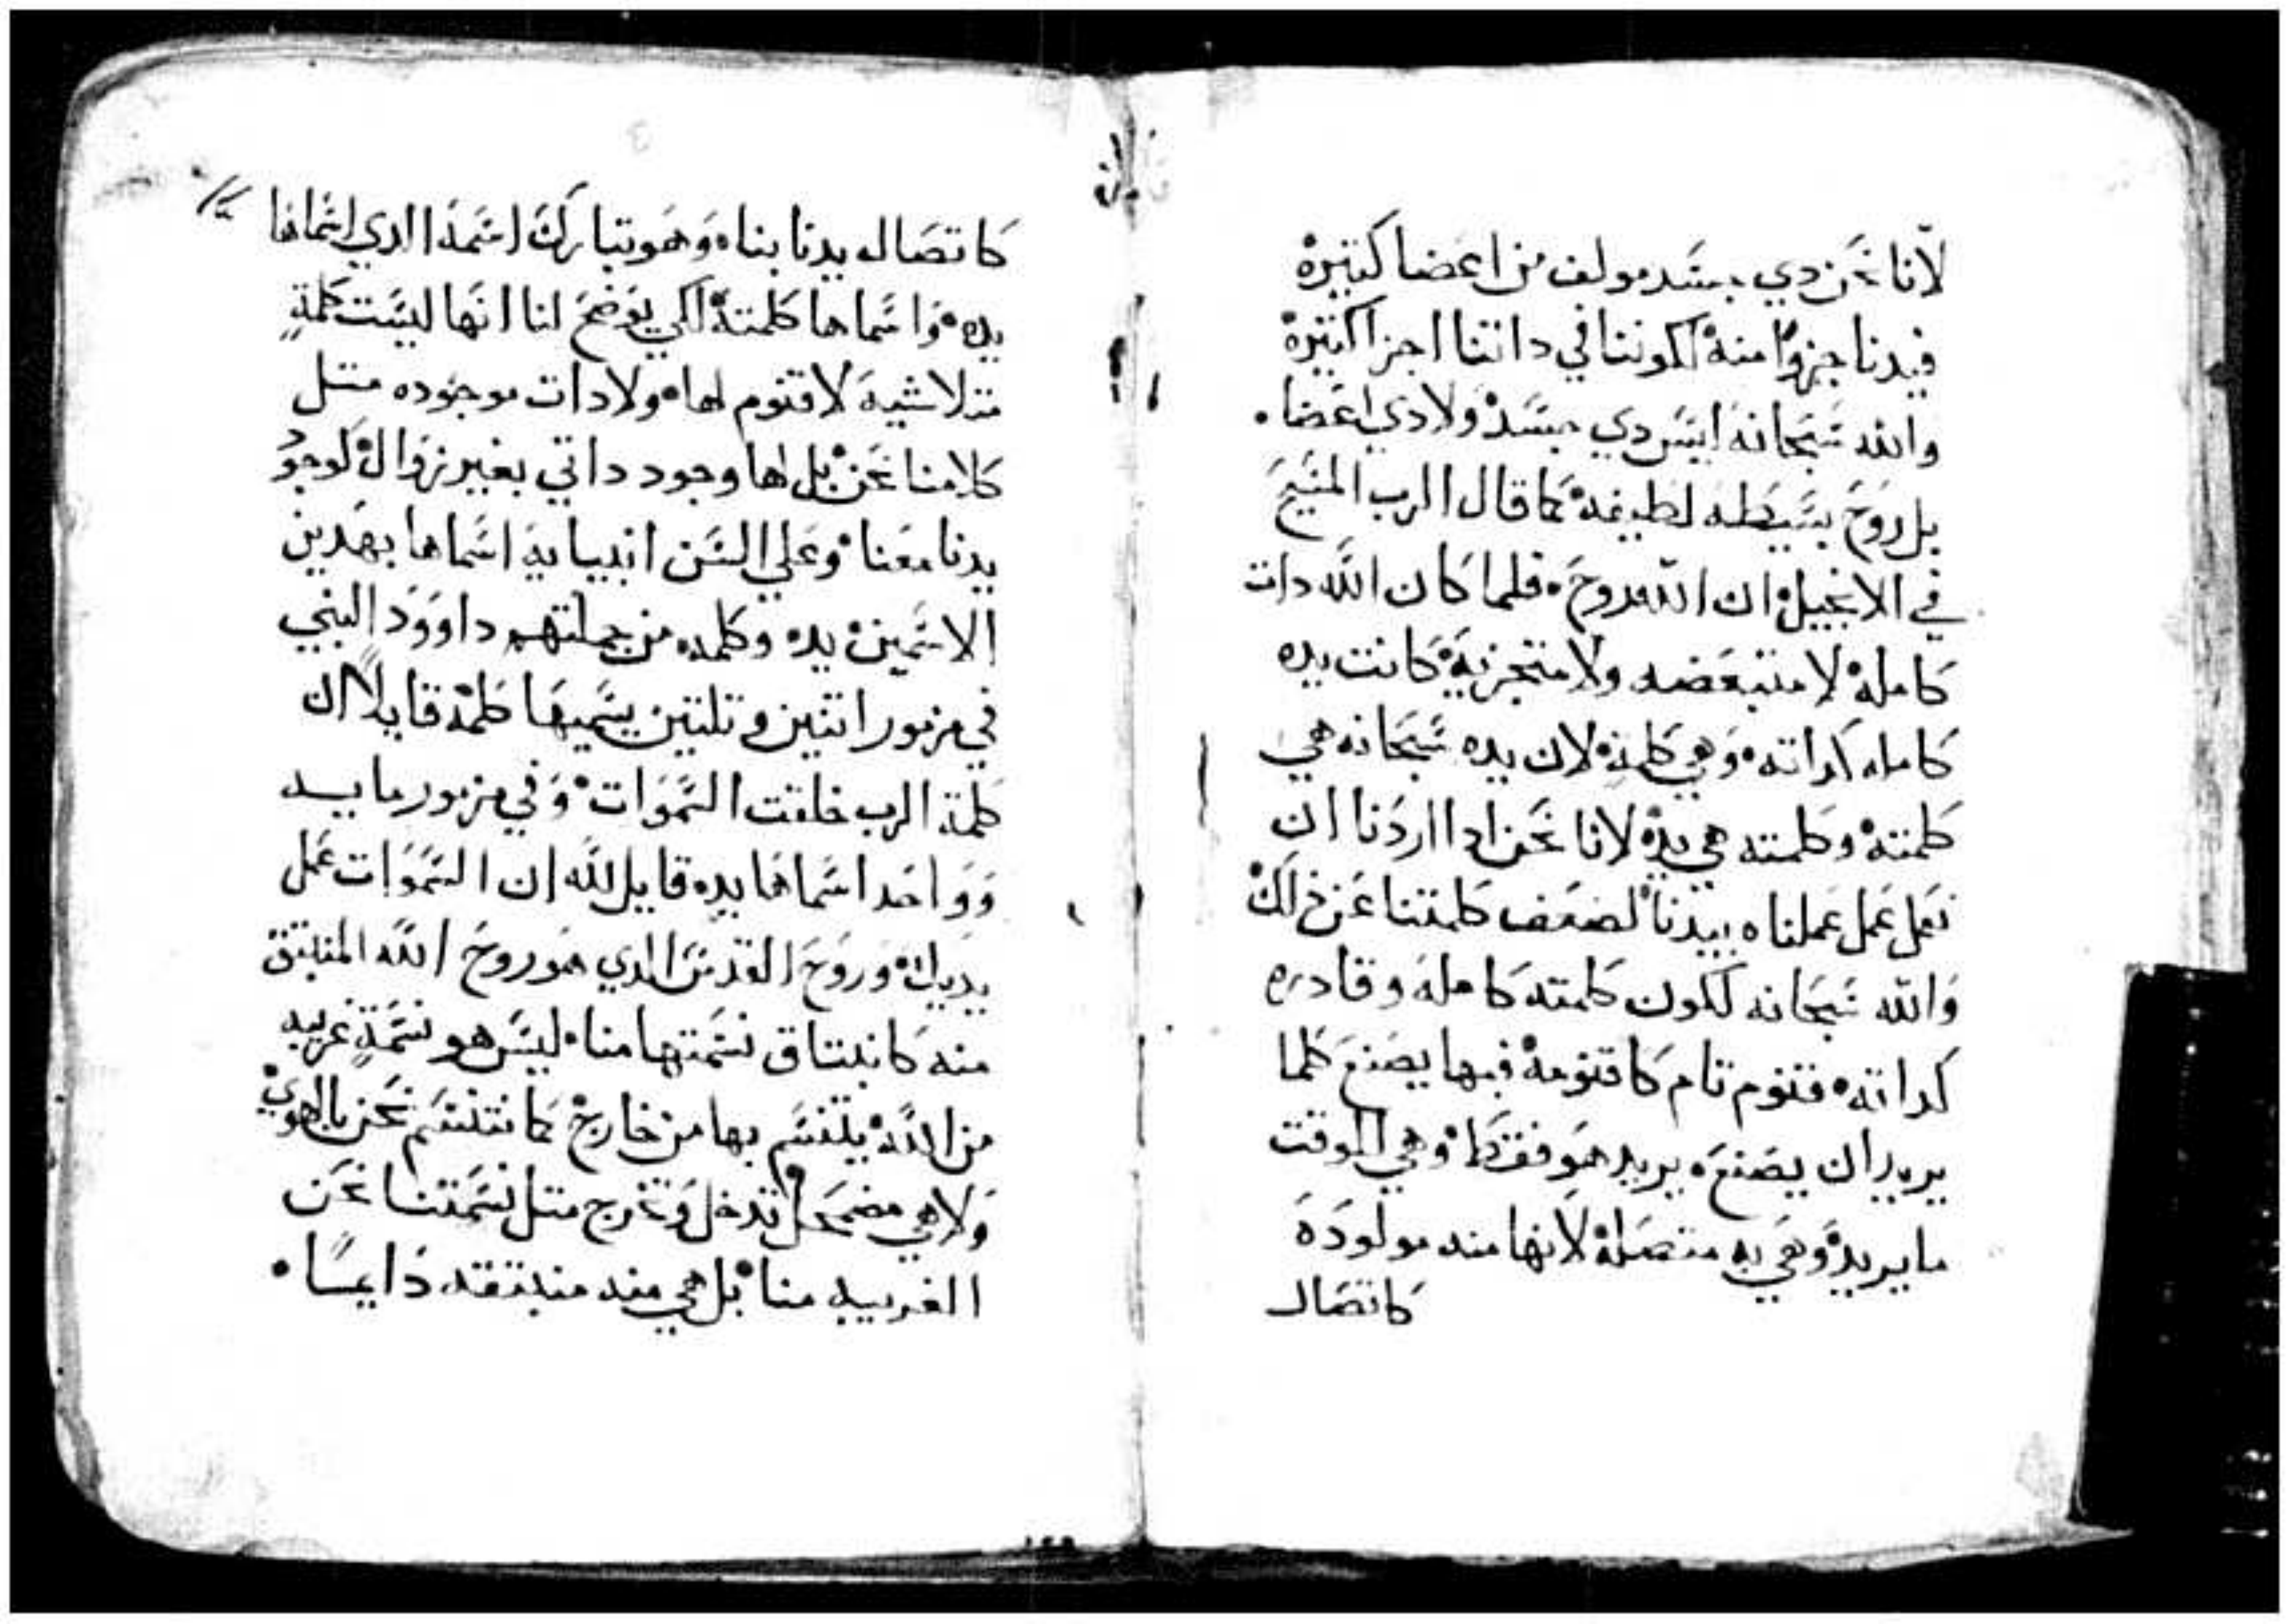 لانا نحن دي جسد مولف من اعضا كتيره
فيدنا جزوًا منه لكوننا في داتنا اجزا كتيره
والله سبحانه ليس دي جسد ولا دي اعضا.
بل روح بسيطه لطيفه كما قال الرب المسيح
في الانجيل ان الله روح. فلما كان الله دات
كامله لا متبعضه ولا متجزيه كانت يده
كامله كداته وهي كلمته لان يده سبحانه هي
كلمته وكلمته هي يده لانا نحن ادا اردنا ان
نعمل عمل عملناه بيدنا لضعف كلمتنا عن دلك
والله سبحانه لكون كلمته كامله وقادره
كداته قنوم تام كاقنومه فبها يصنع كلما
يريد ان يصنعه يريد هو فقط وهي الوقت
ما يريد وهي به متصله لانها منه مولوده
كاتصال
كاتصال يدنا بنا. وهو تبارك اسمه الدي اسماها
يده واسماها كلمته لكي يوضح لنا انها ليست كلمةٍ
متلاشيه لا قنوم لها ولا دات موجوده متل
كلامنا نحن بل لها وجود داتي بغير زوال كوجود
يدنا معنا وعلي السن انبيايه اسماها بهدين
الاسمين يده وكلمه من جملتهم داوود النبي
في مزمور اتنين وتلتين يسميها كلمة قايلًا ان
كلمة الرب خلقت السموات وفي مزمور مايه
وواحد اسماها يده قايل لله ان السموات عمل
يديك وروح القدس الدي هو روح الله المنبتق
منه كانبتاق نسمتها منا ليس هو نسمةٍ غريبه
من الله يتنسم بها من خارج كما نتنسم نحن بالهوي
ولا هي مضمحل تدخل وتخرج متل نسمتنا نحن
الغريبه منا بل هي منه منبتقه دايمًا.